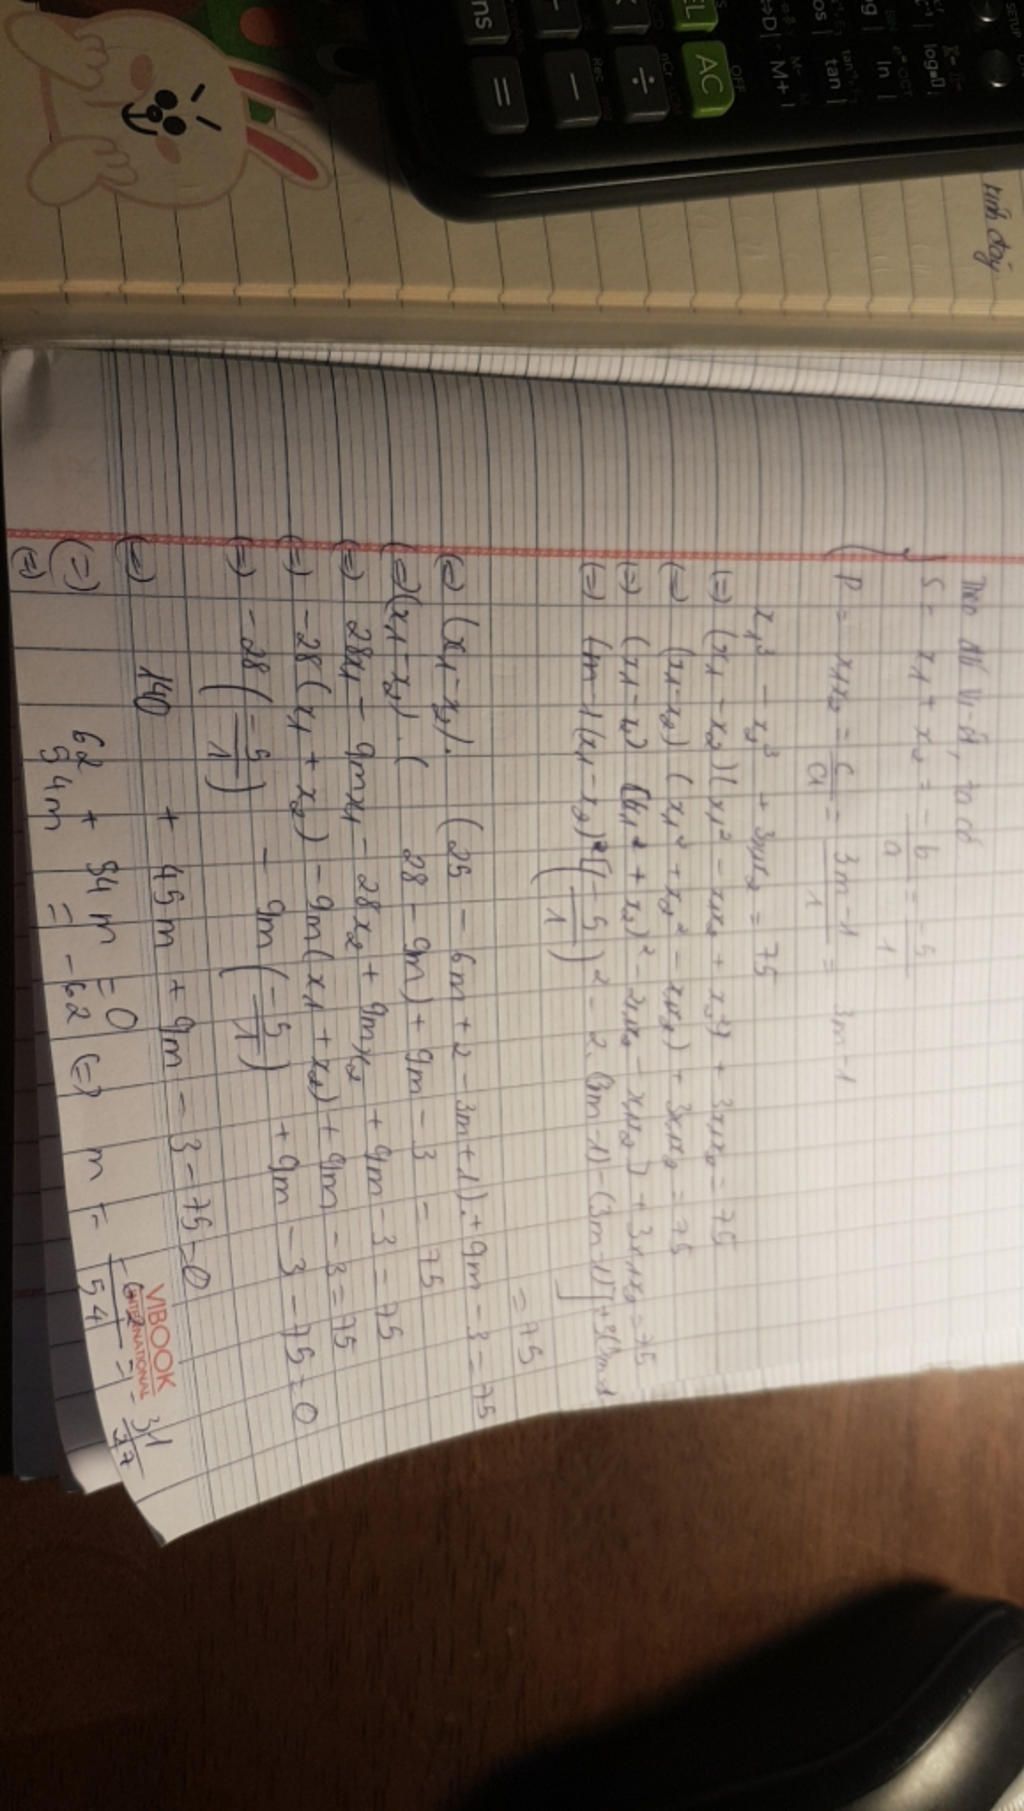 Theo ĐL Vi-ét, ta có
S = x1 + x2 = -b/a = -5/1
P = x1x2 = c/a = 3m-1/1 = 3m-1
x1³ - x2³ + 3x1x2 = 75
(=) (x1 - x2)(x1² - x1x2 + x2²) + 3x1x2 = 75
(=) (x1-x2)(x1² + x2² - x1x2) + 3x1x2 = 75
(=) (x1-x2)(x1² + x2)² - 2x1x2 - x1x2) + 3x1x2 = 75
(=) (x1 - x2) [(-5/1)² - 2.(3m-1) - (3m-1)] + 3(3m-1
= 75
(=) (x1-x2). (25 - 6m+2 - 3m+1) + 9m - 3 = 75
(=) (x1-x2). (28 - 9m) + 9m - 3 = 75
(=) 28x1 - 9mx1 - 28x2 + 9mx2 + 9m - 3 = 75
(=) -28(x1 + x2) - 9m(x1 + x2) + 9m - 3 = 75
(=) -28(-5/1) - 9m(-5/1) + 9m - 3 - 75 = 0
(=) 140 + 45m + 9m - 3 - 75 = 0
(=) 62 + 54m = 0
(=) 54m = -62 (=) m = -62/54 = -31/27
VIBOOK
INTERNATIONAL
ns
=
÷
Rec
nCr
AC
OFF
M+
M-
tan
ln
log
SETUP